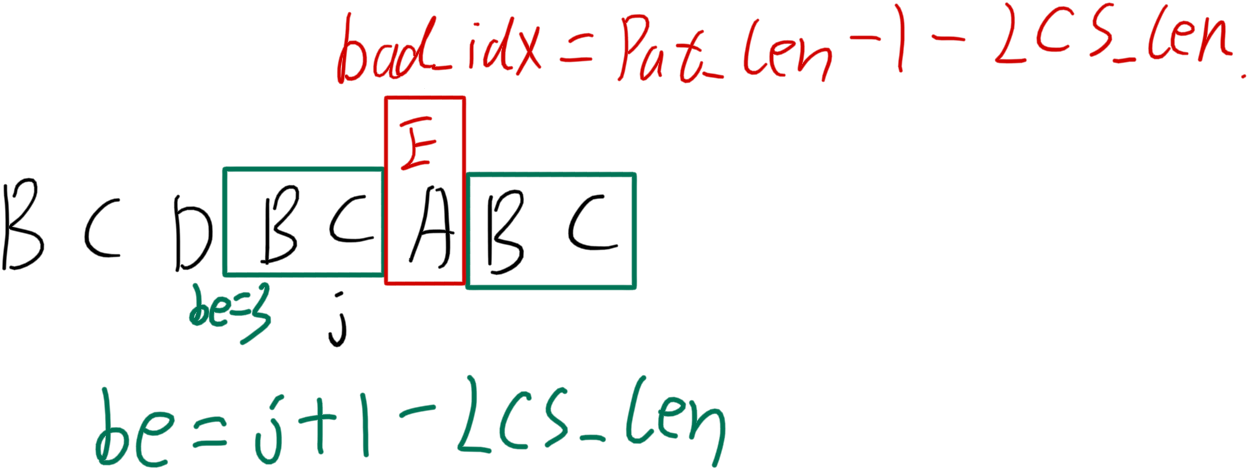 bad_idx = Pat_len - 1 - LCS_len.
E
B C D B C A B C
be=3 j
be = j + 1 - LCS_len